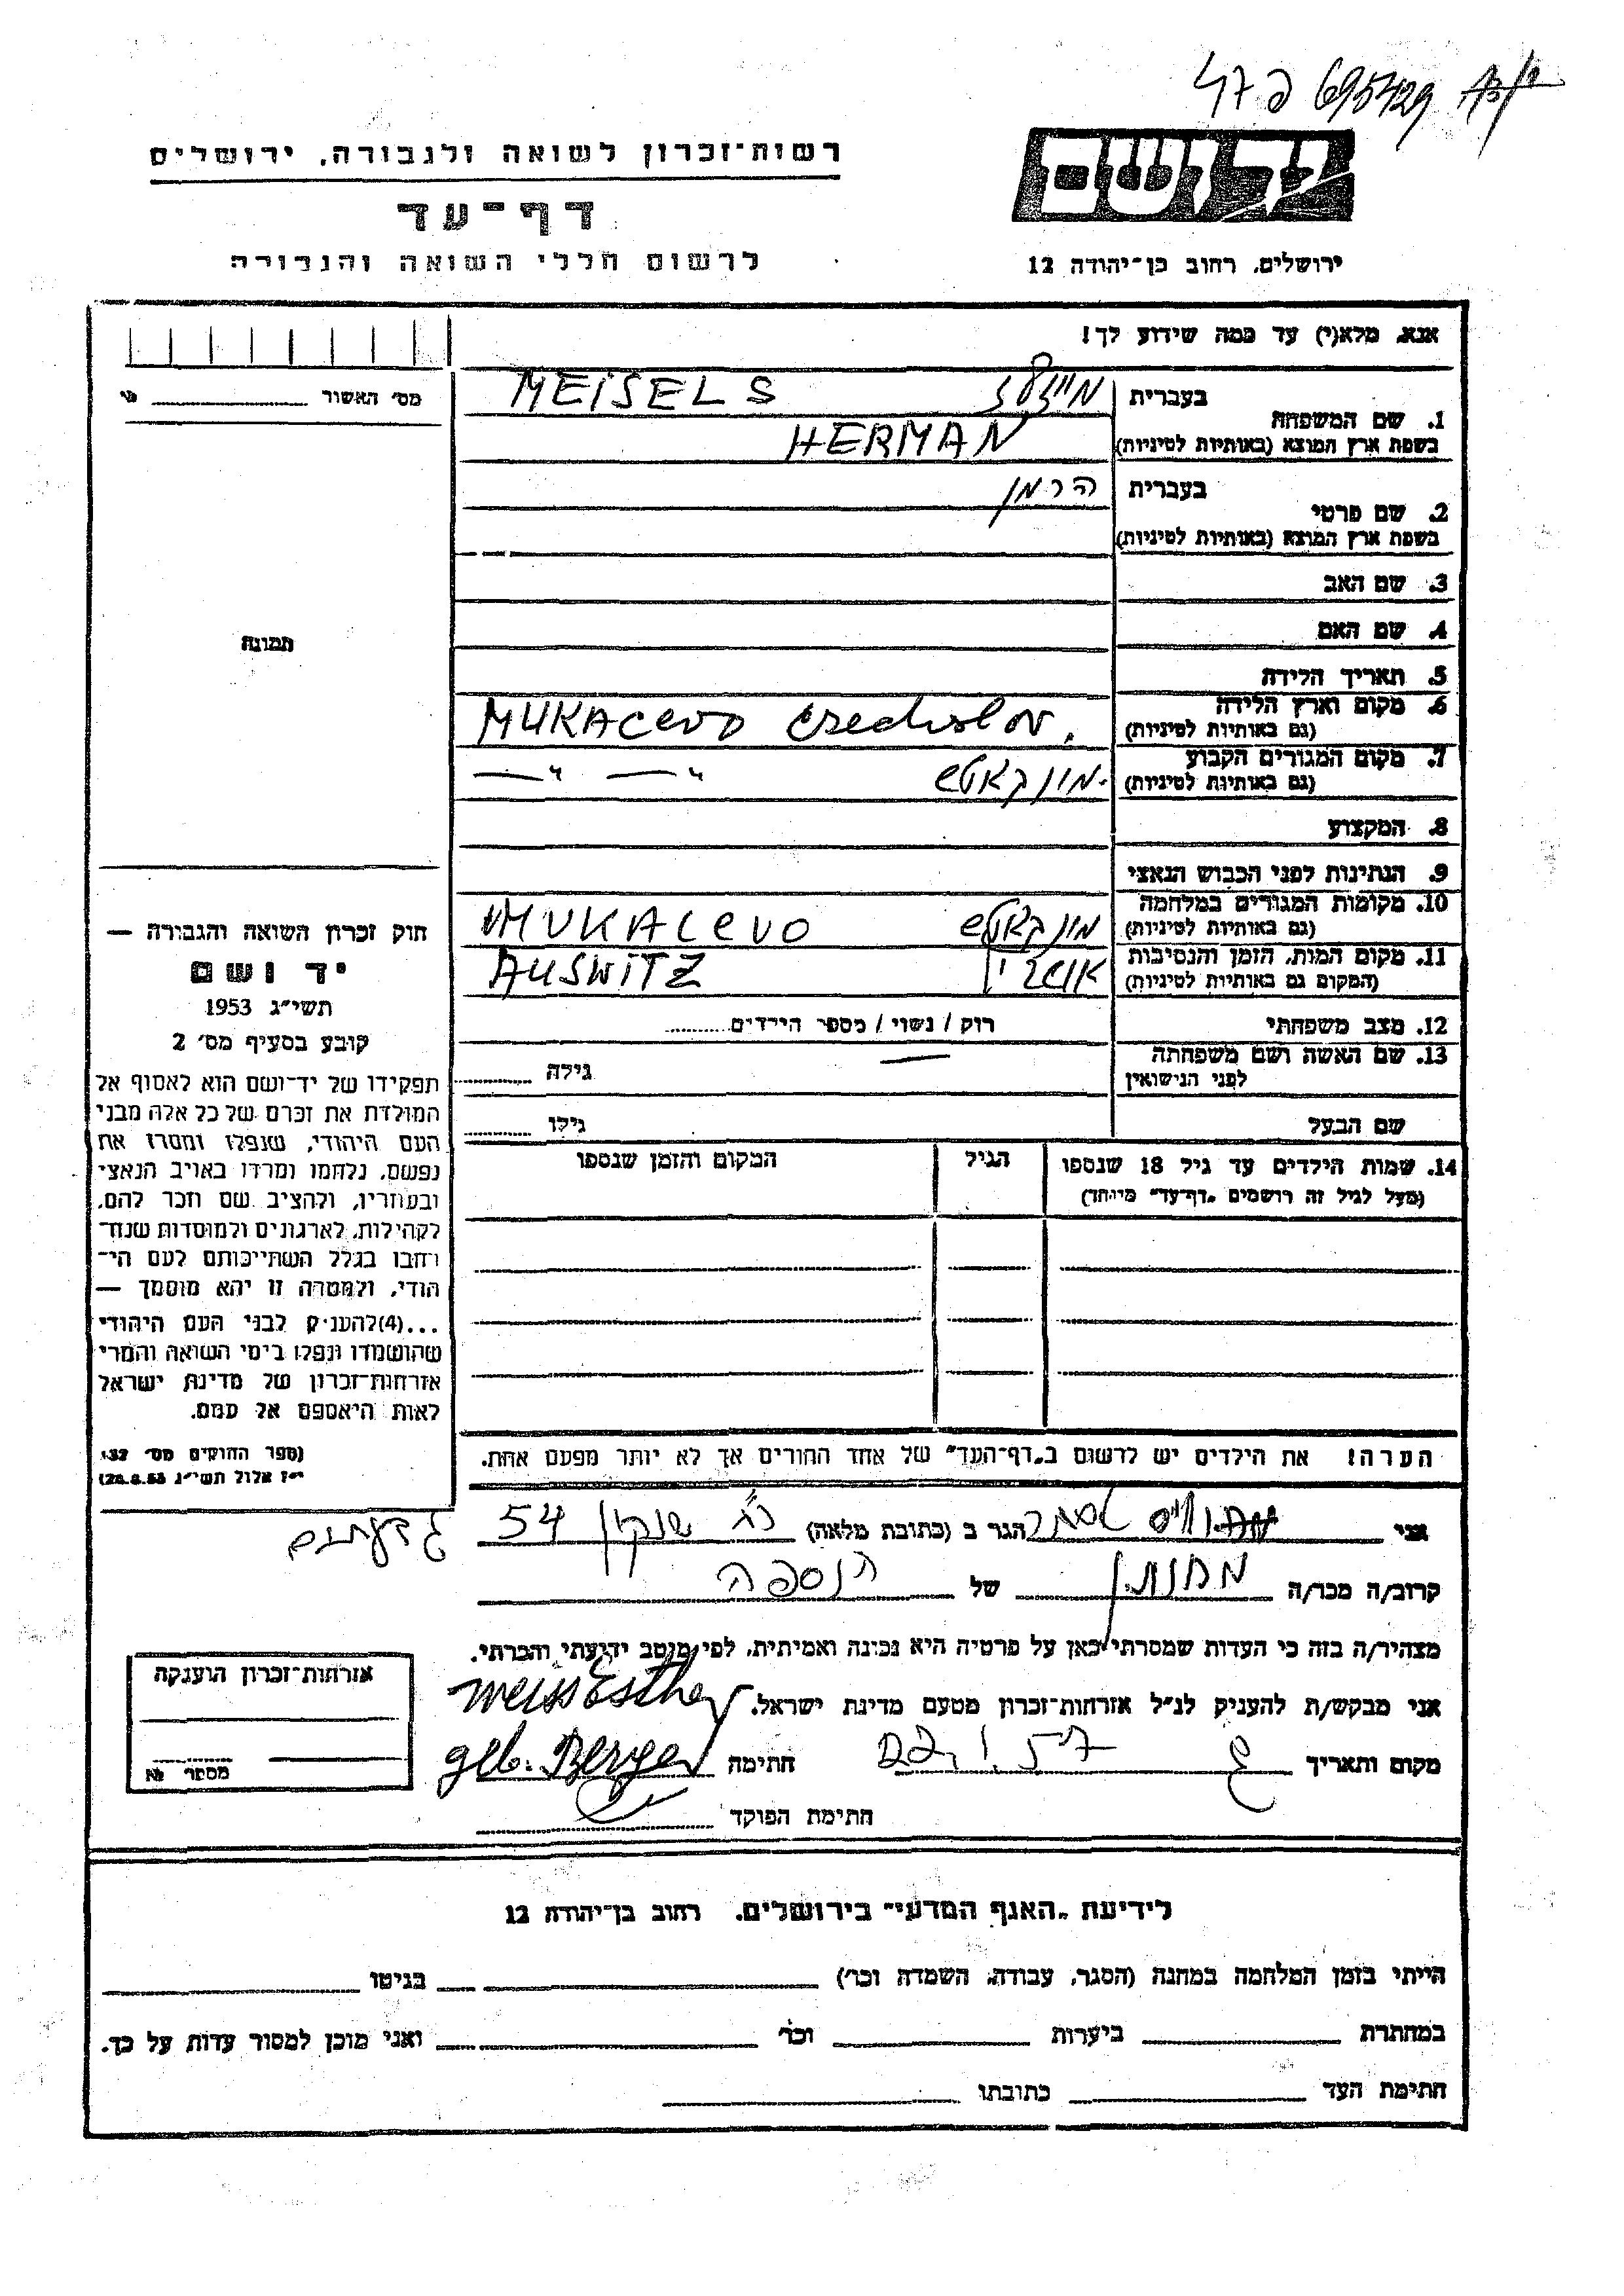 695429 47 פ
רשות־זכרון לשואה ולגבורה, ירושלים
דף־עד
לרשום חללי השואה והגבורה
ירושלים, רחוב בן־יהודה 12
אנא, מלא(י) עד כמה שידוע לך!
מס׳ האשור
בעברית מייזלס MEISELS
1. שם המשפחה
בשפת ארץ המוצא (באותיות לטיניות) HERMAN
בעברית הרמן
2. שם פרטי
בשפת ארץ המוצא (באותיות לטיניות)
3. שם האב
4. שם האם
תמונה
5. תאריך הלידה
6. מקום וארץ הלידה MUKACEVO
(גם באותיות לטיניות)
7. מקום המגורים הקבוע מונקאטש — " — "
(גם באותיות לטיניות)
8. המקצוע
9. הנתינות לפני הכבוש הנאצי
10. מקומות המגורים במלחמה מונקאטש MUKACEVO
(גם באותיות לטיניות)
11. מקום המות, הזמן והנסיבות AUSWITZ
(המקום גם באותיות לטיניות)
12. מצב משפחתי רוק / נשוי / מספר הילדים
13. שם האשה ושם משפחתה גילה
לפני הנישואין
שם הבעל גילו
14. שמות הילדים עד גיל 18 שנספו הגיל המקום והזמן שנספו
(מעל לגיל זה רושמים „דף־עד" מיוחד)
חוק זכרון השואה והגבורה —
יד ושם
תשי״ג 1953
קובע בסעיף מס׳ 2
תפקידו של יד־ושם הוא לאסוף אל
המולדת את זכרם של כל אלה מבני
העם היהודי, שנפלו ומסרו את
נפשם, נלחמו ומרדו באויב הנאצי
ובעוזריו, ולהציב שם וזכר להם,
לקהילות, לארגונים ולמוסדות שנח־
רבו בגלל השתייכותם לעם הי־
הודי, ולמטרה זו יהא מוסמך —
...(4) להעניק לבני העם היהודי
שהושמדו ונפלו בימי השואה והמרי
אזרחות־זכרון של מדינת ישראל
לאות היאספם אל עמם.
(ספר החוקים מס׳ 132
י״ז אלול תשי״ג 28.8.53)
הערה! את הילדים יש לרשום ב„דף־העד" של אחד ההורים אך לא יותר מפעם אחת.
אני אסתר הגר ב (כתובת מלאה) 54
גבעתיים
קרוב/ה מכר/ה של הנספה
מצהיר/ה בזה כי העדות שמסרתי כאן על פרטיה היא נכונה ואמיתית, לפי מיטב ידיעתי והכרתי.
אני מבקש/ת להעניק לנ״ל אזרחות־זכרון מטעם מדינת ישראל. Weiss Esther
מקום ותאריך חתימה geb. Berger
חתימת הפוקד
אזרחות־זכרון הוענקה
מספר
לידיעת „האגף המדעי" בירושלים, רחוב בן־יהודה 12
הייתי בזמן המלחמה במחנה (הסגר, עבודה, השמדה וכו׳) בגיטו
במחתרת ביערות וכו׳ ואני מוכן למסור עדות על כך.
חתימת העד כתובתו